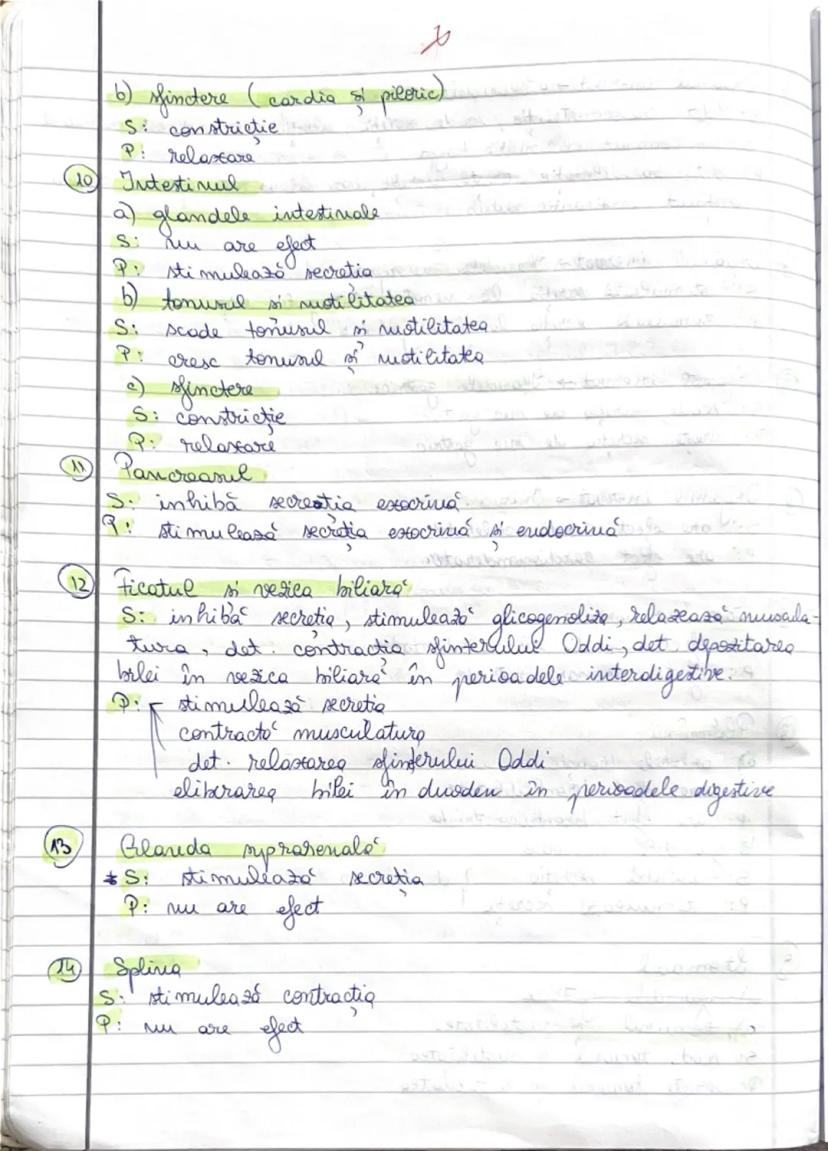 b) sfinctere (cardia și piloric)
S: constricție
P: relaxare
10 Intestinul
a) glandele intestinale
S: nu are efect
P: stimulează secretia
b) tonusul si motilitatea
S: scade tonusul si motilitatea
P: cresc tonusul și motilitatea
c) sfinctere
S: constricție
P: relaxare
11 Pancreasul
S: inhibă secreția exocrină
P: stimulează secreția exocrină și endocrină
12 Ficatul si vezica biliară
S: inhibă secreția, stimulează glicogenoliza, relaxează muscula-
tura, det. contracția sfinterului Oddi, det. depozitarea
bilei în vezica biliară în perioadele interdigestive.
P: stimulează secretia
contractă musculatura
det. relaxarea sfinterului Oddi
eliberarea bilei în duoden în perioadele digestive
13 Glanda suprarenală
* S: stimulează secreția
P: nu are efect
14 Splina
S: stimulează contracția
P: nu are efect